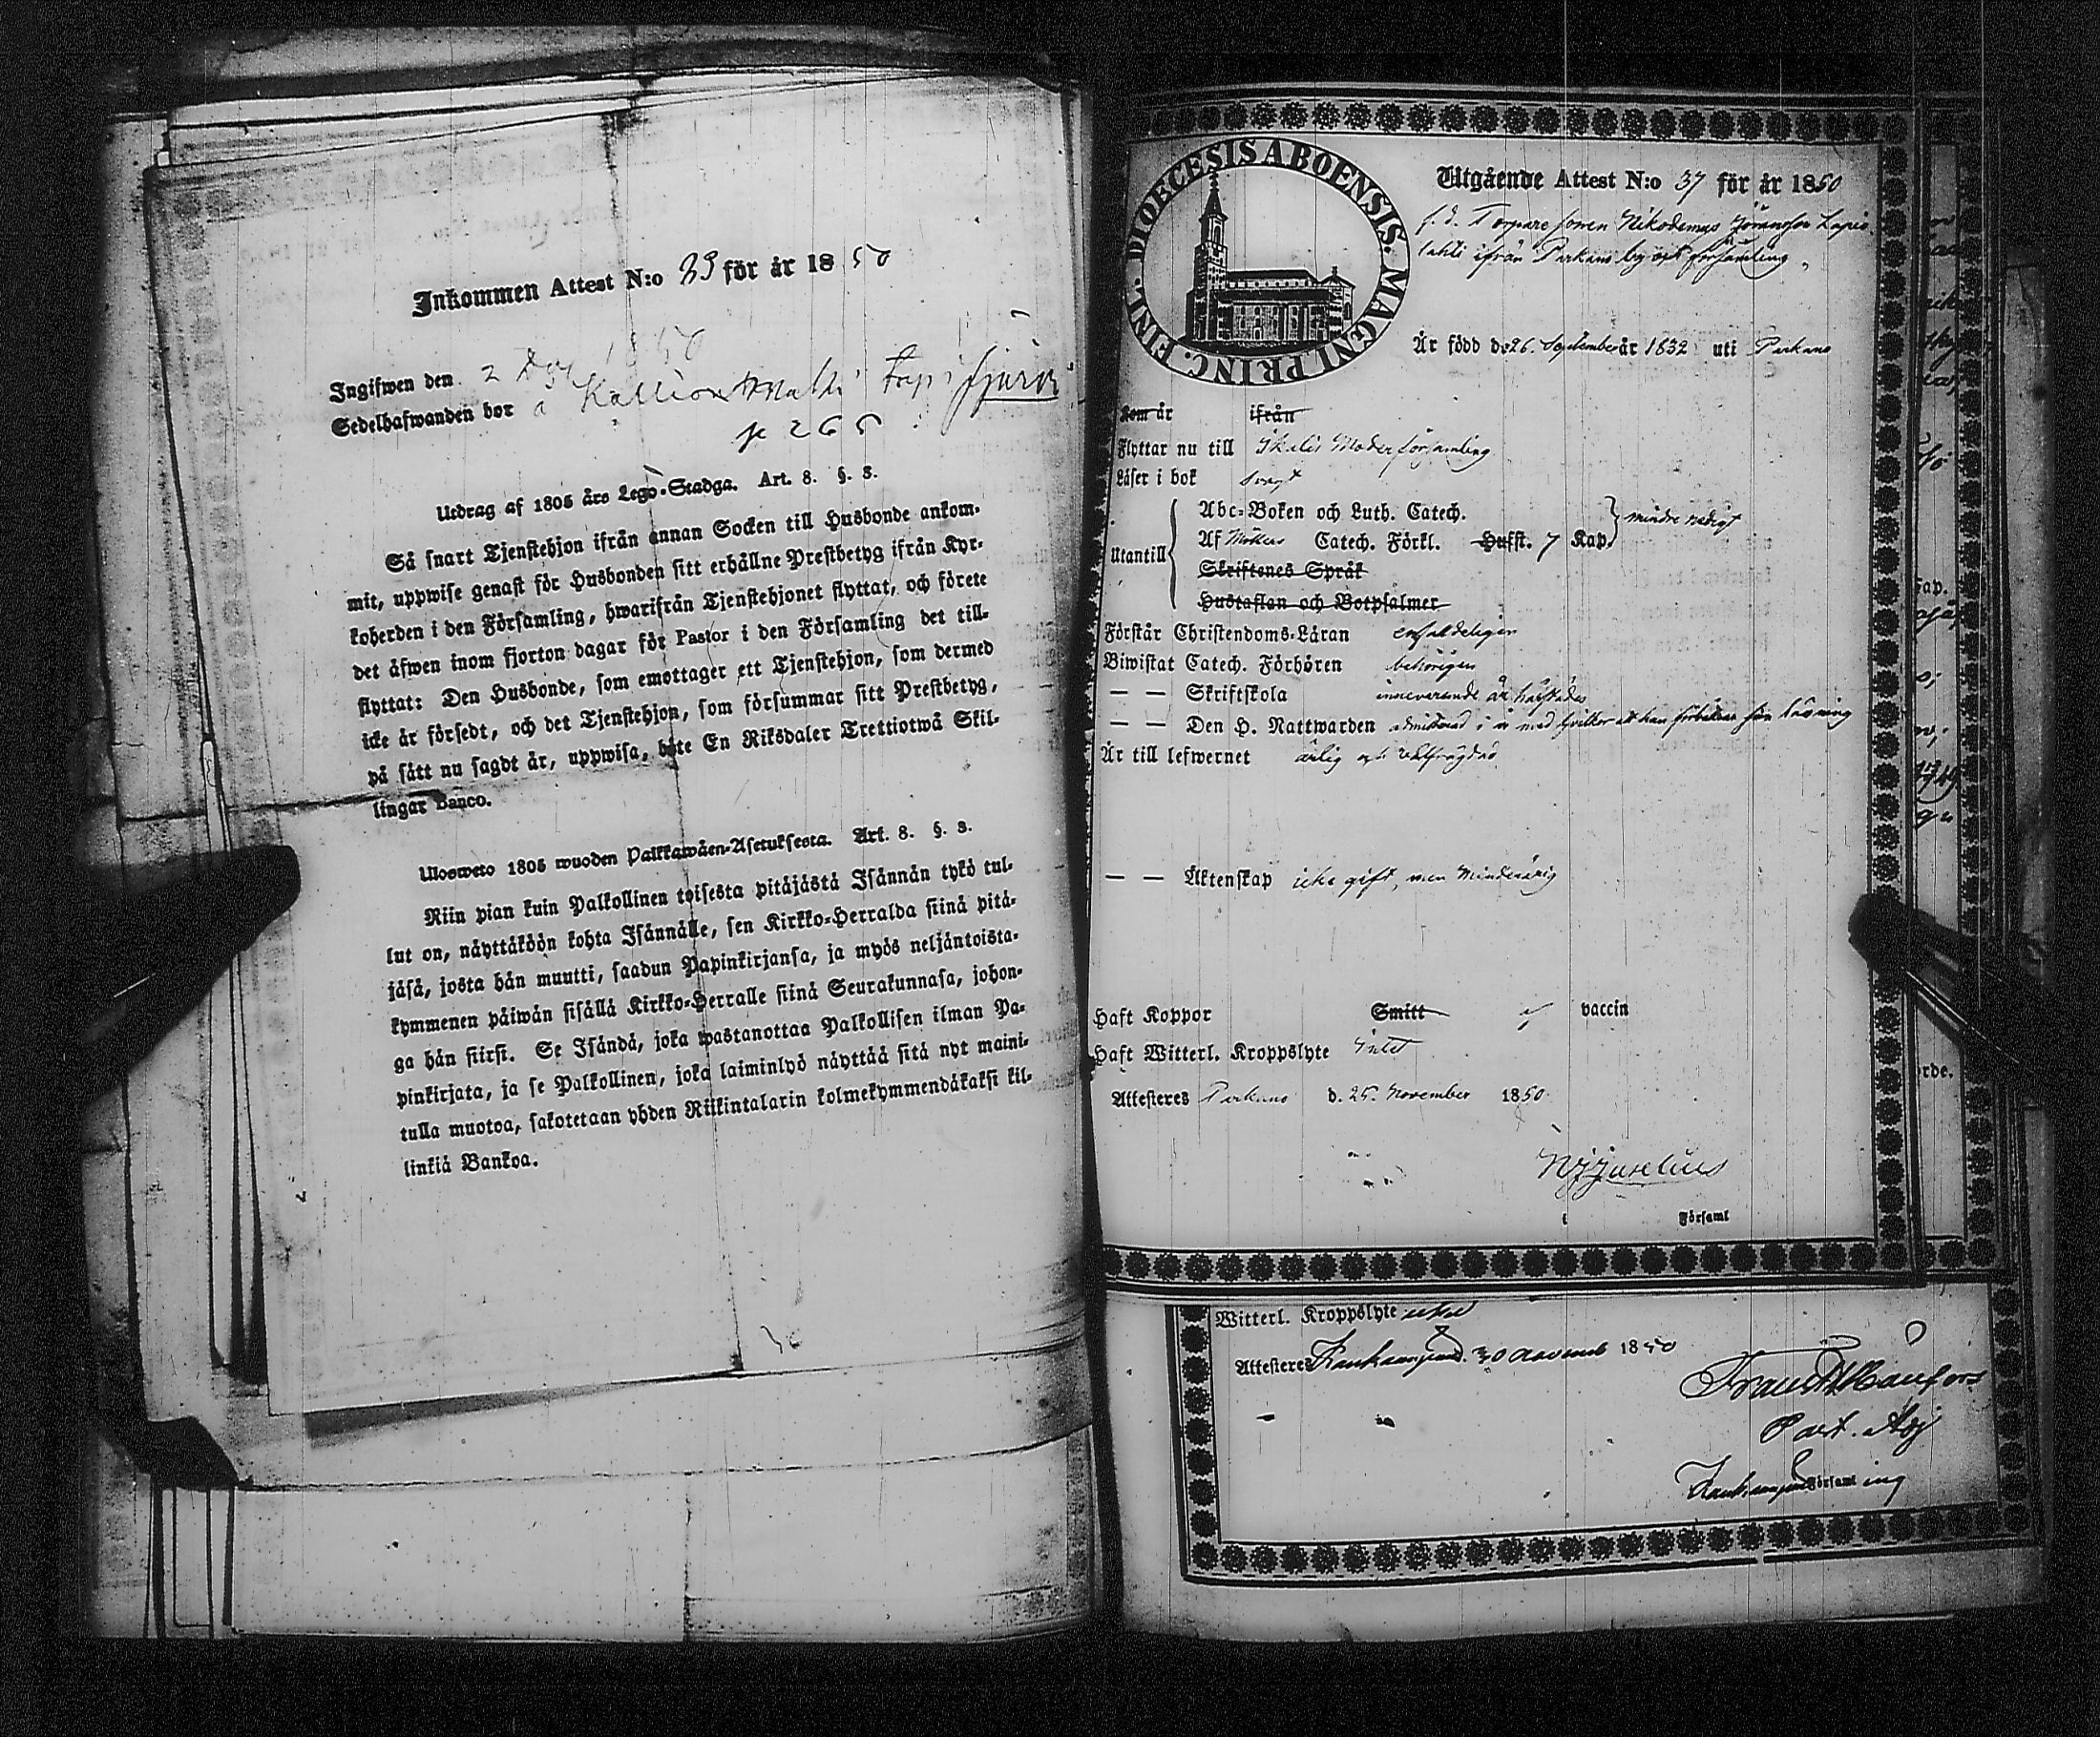 Inkommen Attest N:o 23 för år 1850
Ingifwen den 2 Dec 1850
Sedelhafwanden bor å
p 265
Utdrag af 1805 års Lego-Stadga. Art. 8. §. 3.
Så snart Tjenstehjon ifrån annan Socken till Husbonde ankom-
mit, uppwise genast för Husbonden sitt erhållne Prestbetyg ifrån Kyr-
koherden i den Församling, hwarifrån Tjenstehjonet flyttat, och förete
det äfwen inom fjorton dagar för Pastor i den Församling det till-
flyttat: Den Husbonde, som emottager ett Tjenstehjon, som dermed
icke är försedt, och det Tjenstehjon, som försummar sitt Prestbetyg,
på sätt nu sagdt är, uppwisa, böte En Riksdaler Trettiotwå Skil-
lingar Banco.
Ulosweto 1805 wuoden Palkkawäen-Asetuksesta. Art. 8. §. 3.
Niin pian kuin Palkollinen toisesta pitäjästä Isännän tykö tul-
lut on, näyttäköön kohta Isännälle, sen Kirkko-Herralda siinä pitä-
jäsä, josta hän muutti, saadun Papinkirjansa, ja myös neljäntoista-
kymmenen päiwän sisällä Kirkko-Herralle siinä Seurakunnasa, johon-
ga hän siirst. Se Isändä, joka wastanottaa Palkollisen ilman Pa-
pinkirjata, ja se Palkollinen, joka laiminlyö näyttää sitä nyt maini-
tulla muotoa, sakotetaan yhden Riikintalarin kolmekymmendäkaksi kil-
linkiä Bankoa.
DIOECESIS ABOENSIS. MAGNI PRINC. FINL.
Utgående Attest N:o 37 för år 1850
f. d. Torpare sonen Nikodemus Göransson Lapio
lahti ifrån Parkano by och församling
Är född d. 26. September år 1832 uti Parkano
Kom år ifrån
Flyttar nu till Ikalis Moderförsamling
Läser i bok svagt
Utantill
Abc-Boken och Luth. Catech.
Af Möllers Catech. Förkl. Hufst. 7 Kap. mindre redigt
Skriftenes Språk
Hustaflan och Botpsalmer
Förstår Christendoms-Läran enfaldeligen
Biwistat Catech. Förhören behörigen
— — Skriftskola innevarande år härstädes
— — Den H. Nattwarden admitterad i år med villkor att han förbättrar sin läsning
Är till lefwernet ärlig och välfrägdad
— — Äktenskap icke gift, men minderårig
Haft Koppor Smitt vaccin
Haft Witterl. Kroppslyte Intet
Attesteres Parkano d. 25. November 1850.
i Församl
Witterl. Kroppslyte
Attesteres d. 30 Novemb 1850
Past. Adj
Församling